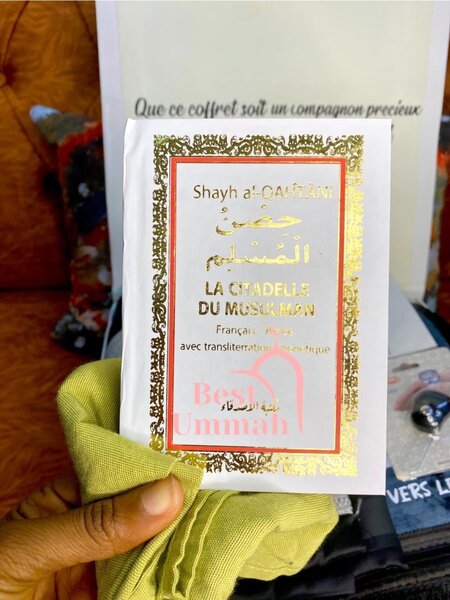 Que ce coffret soit un compagnon precieux
Shayh al-QAHTÂNI
حِصْنُ
الْمُسْلِمِ
LA CITADELLE
DU MUSULMAN
Français
avec translitération phonétique
Best
Ummah
مكتبة الأصدقاء
VERS